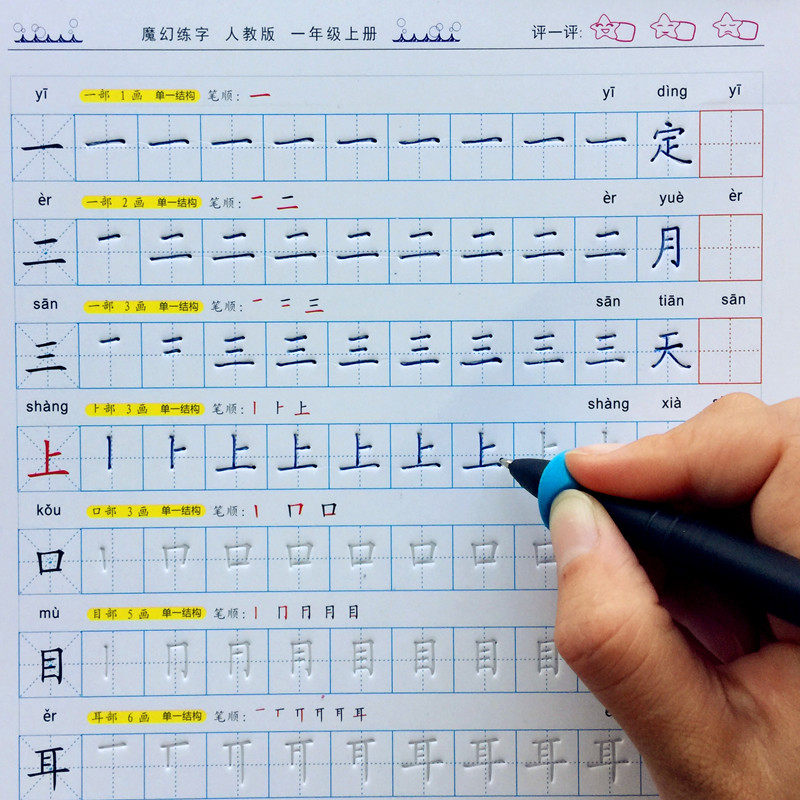 魔幻练字 人教版 一年级上册 评一评:
yī 一部 1画 单一结构 笔顺: 一 yī dìng yī
一 一 一 一 一 一 一 一 一 一 定
èr 一部 2画 单一结构 笔顺: 一 二 èr yuè èr
二 一 二 二 二 二 二 二 二 二 月
sān 一部 3画 单一结构 笔顺: 一 二 三 sān tiān sān
三 一 二 三 三 三 三 三 三 三 天
shàng 卜部 3画 单一结构 笔顺: 丨 卜 上 shàng xià
上 丨 卜 上 上 上 上 上 上
kǒu 口部 3画 单一结构 笔顺: 丨 冂 口
口 丨 冂 口 口 口 口 口 口
mù 目部 5画 单一结构 笔顺: 丨 冂 月 月 目
目 丨 冂 月 月 目 目 目 目
ěr 耳部 6画 单一结构 笔顺: 一 丅 丌 耳
耳 一 丅 丌 耳 耳 耳 耳